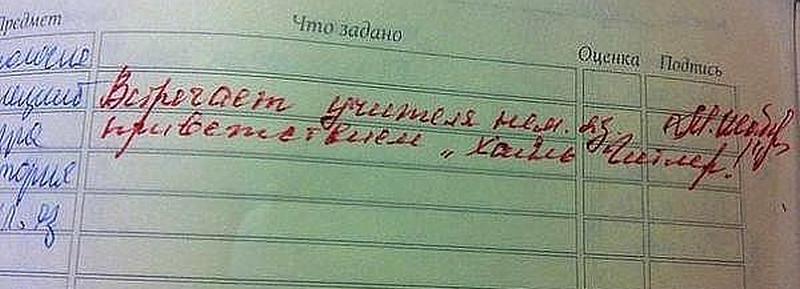 Предмет Что задано Оценка Подпись
Встречает учителя нем. яз.
приветствием „Хайль Гитлер!"
тория